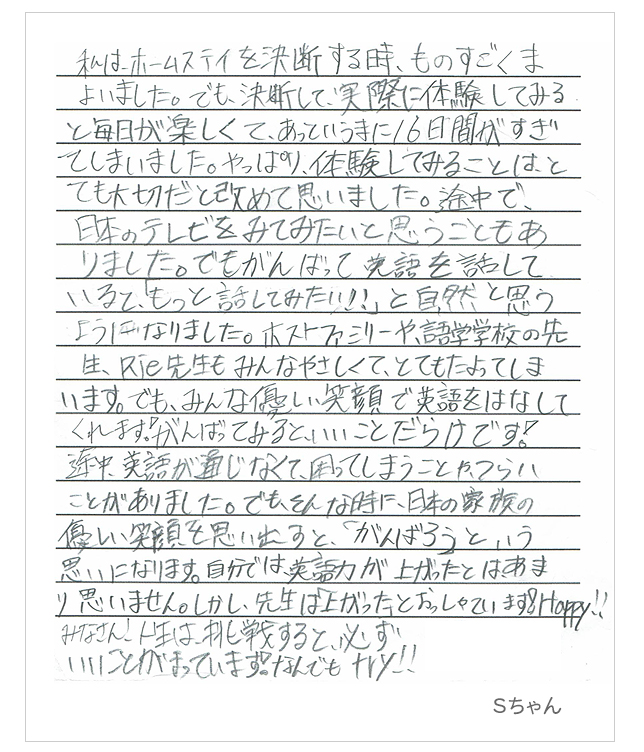 私は、ホームステイを決断する時、ものすごくま
よいました。でも、決断して、実際に体験してみる
と毎日が楽しくて、あっというまに16日間がすぎ
てしまいました。やっぱり、体験してみることは、と
ても大切だと改めて思いました。途中で、
日本のテレビをみてみたいと思うこともあ
りました。でもがんばって英語を話して
いると、「もっと話してみたい!!」と自然と思う
ようになりました。ホストファミリーや、語学学校の先
生、Rie先生もみんなやさしくて、とてもたよってしま
います。でも、みんな優しい笑顔で英語をはなして
くれます!がんばってみると、いいことだらけです!
途中、英語が通じなくて、困ってしまうことや、つらい
ことがありました。でも、そんな時に、日本の家族の
優しい笑顔を思い出すと、「がんばろう」という
思いになります。自分では、英語力が上がったとはあま
り思いません。しかし、先生は上がったとおっしゃています!Happy!!
みなさん!人生は、挑戦すると、必ず
いいことがまっています!なんでも try!!
Sちゃん